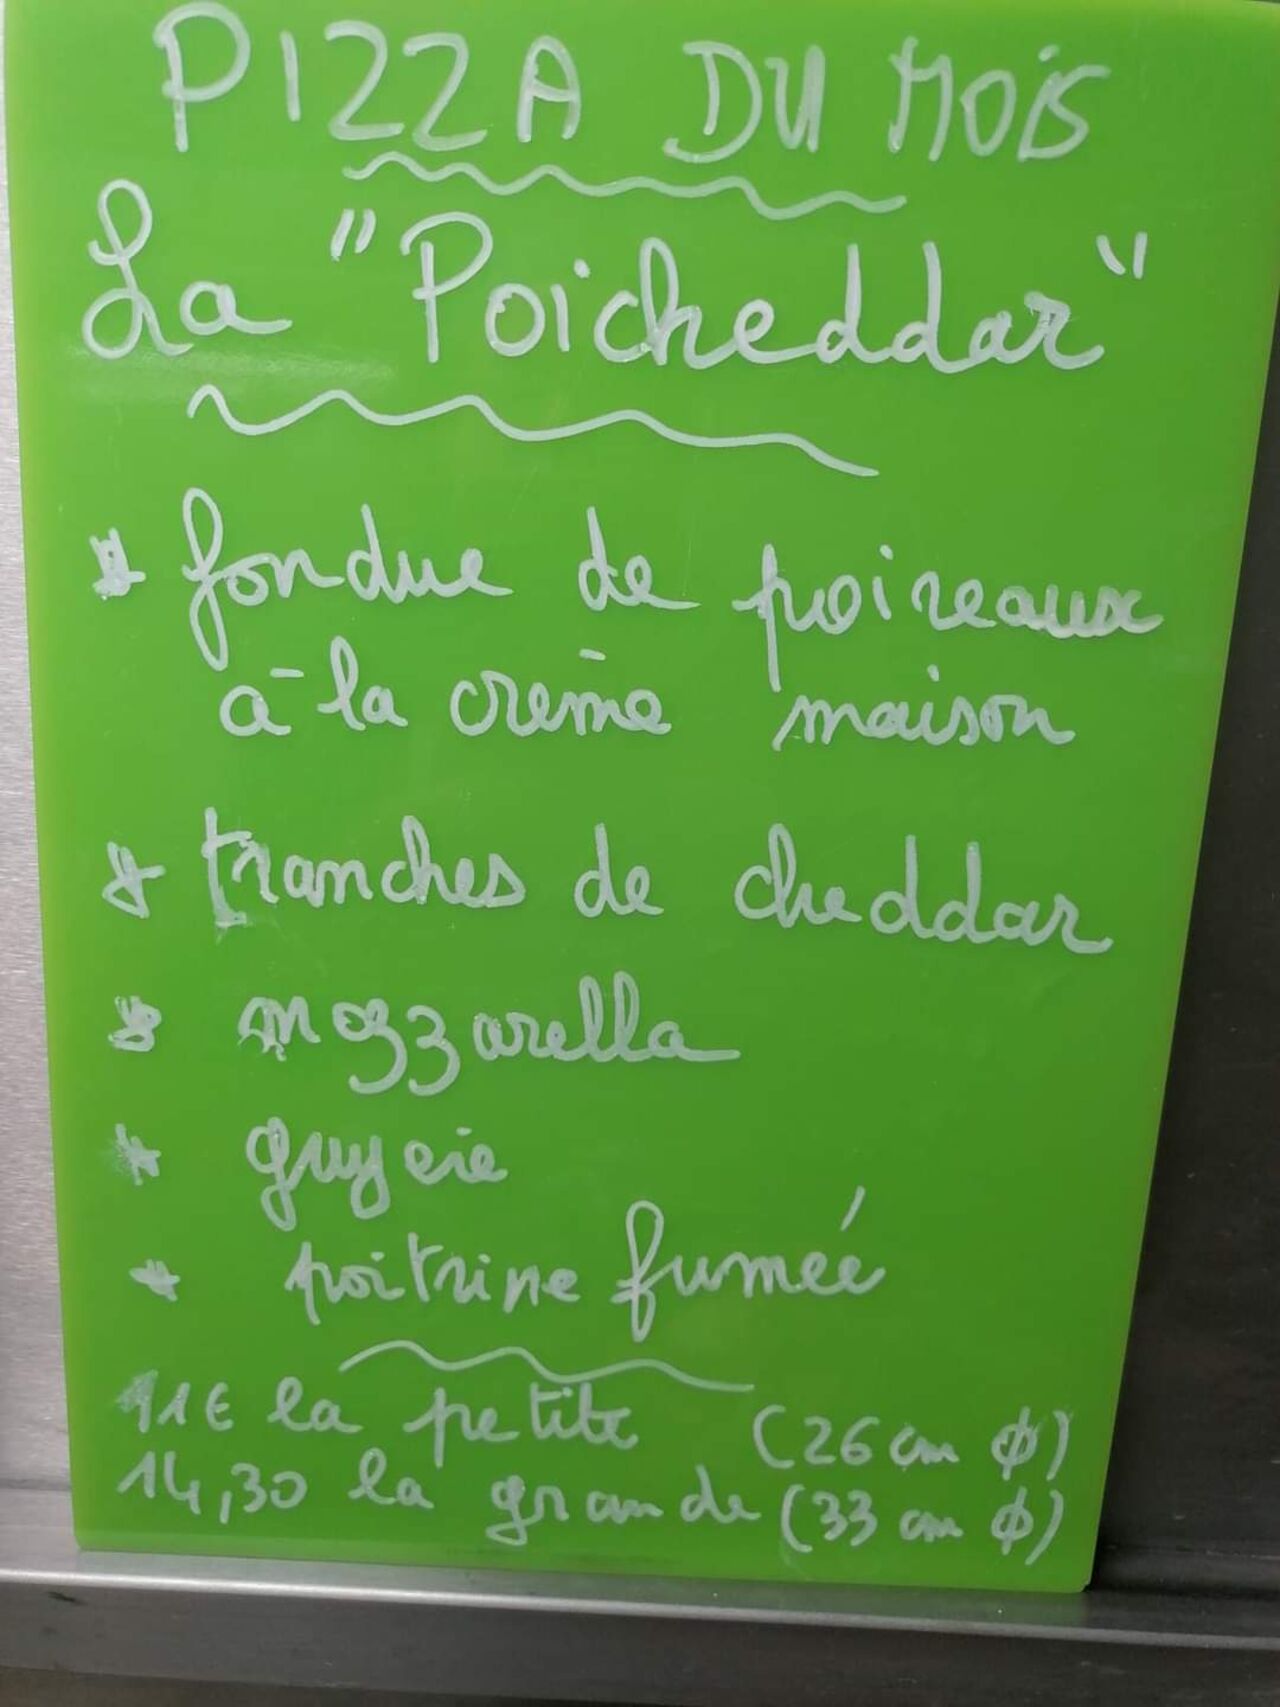 PIZZA DU MOIS
La "Poicheddar"
* fondue de poireaux
à la crème maison
* tranches de cheddar
* mozzarella
* gruyère
* poitrine fumée
11€ la petite (26 cm ϕ)
14,30 la grande (33 cm ϕ)